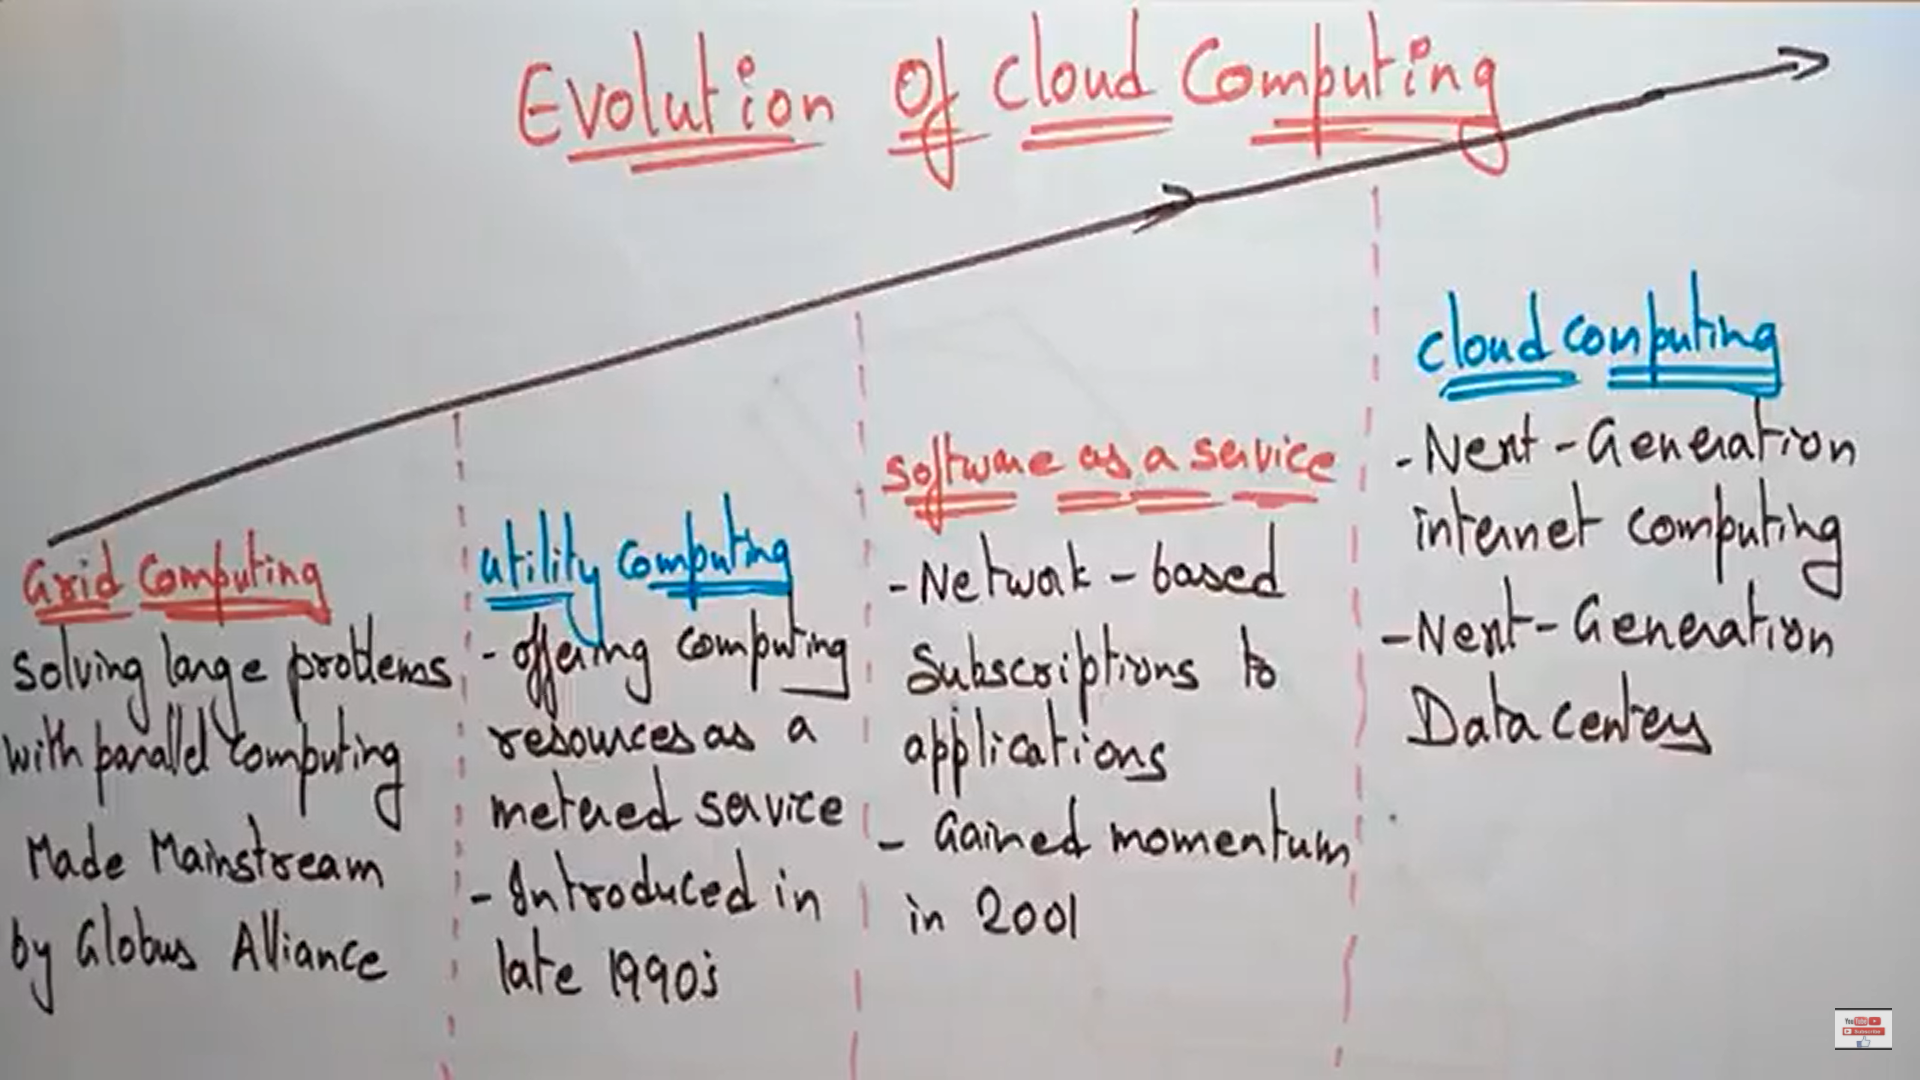 Evolution Of Cloud Computing
Grid Computing
Solving large problems
with parallel Computing
Made Mainstream
by Globus Alliance
utility Computing
- Offering Computing
resources as a
metered service
- Introduced in
late 1990's
Software as a service
- Network-based
Subscriptions to
applications
- Gained momentum
in 2001
Cloud computing
- Next-Generation
internet computing
- Next-Generation
Data centers
YouTube
Subscribe